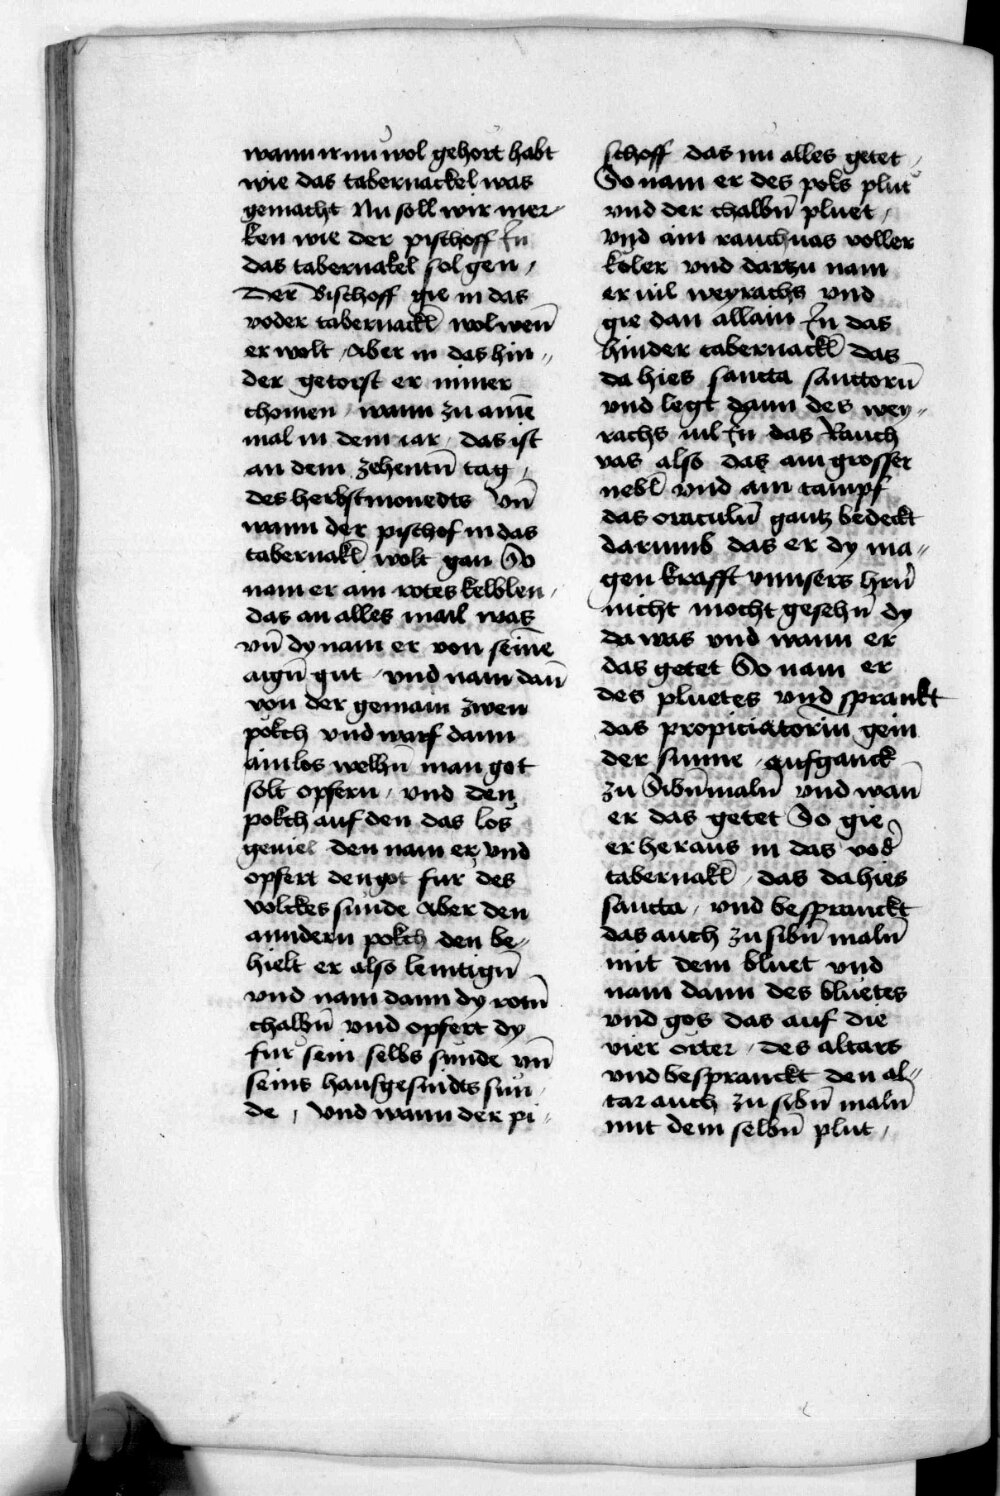 wann ir nu wol gehort habt
wie das tabernackel was
gemacht Nu soll wir mer„
ken wie der pischoff In
das tabernakel sol gen /
Der Bischoff gie in das
voder tabernackl̄ wol wen̄
er wolt / Aber in das hin„
der getorst er nimer
chomen / wann zu aim̄e
mal in dem iar / das ist
an dem zehentn̄ tag /
des herbstmonedts Vn̄
wann der pischof in das
tabernakl̄ wolt gan So
nam er ain rotes kelblen /
das an alles mail was
vn̄ dy nam er von sein̄e
aign̄ gut / vnd nam dan̄
von der gemain zwen
pökch vnd warf dann
ain los welhn̄ man got
solt opfern / vnd den
pokch auf den das los
geuiel den nam er vnd
opfert den got für des
volckes sünde Aber den
anndern pokch den be„
hielt er also lemtign̄
vnd nam dann dy rotn̄
chalbn̄ vnd opfert dy
für sein selbs sünde vn̄
seins hausgesindts sün„
de / Vnd wann der pi„
schoff das nu alles getet /
So nam er des poks plut
vnd der chalbn̄ pluet /
Vnd ain rauchuas voller
koler vnd dartzu nam
er uil weyrachs vnd
gie dan allain In das
hinder tabernackl̄ das
da hies sancta sanctorū
vnd legt dann des wey„
rachs uil In das Rauch
vas also das ain grosser
nebl̄ vnd ain tampf
das oraculū gantz bedeckt
darumb das er dy ma„
gen krafft vnnsers hrn̄
nicht mocht gesehn̄ dy
da was vnd wann er
das getet So nam er
des pluetes vnd sprankt
das propiciatorin gein
der sunne / aufganck
zu Sibn̄maln̄ vnd wan̄
er das getet So gie
er heraus in das vod̄
tabernakl̄ / das da hies
sancta / vnd besprannckt
das auch zu sibn̄ maln̄
mit dem bluet vnd
nam dann des bluetes
vnd gos das auf die
vier örter / des altars
vnd besprannckt den al„
tar auch zu sibn̄ maln̄
mit dem selbn̄ plut /